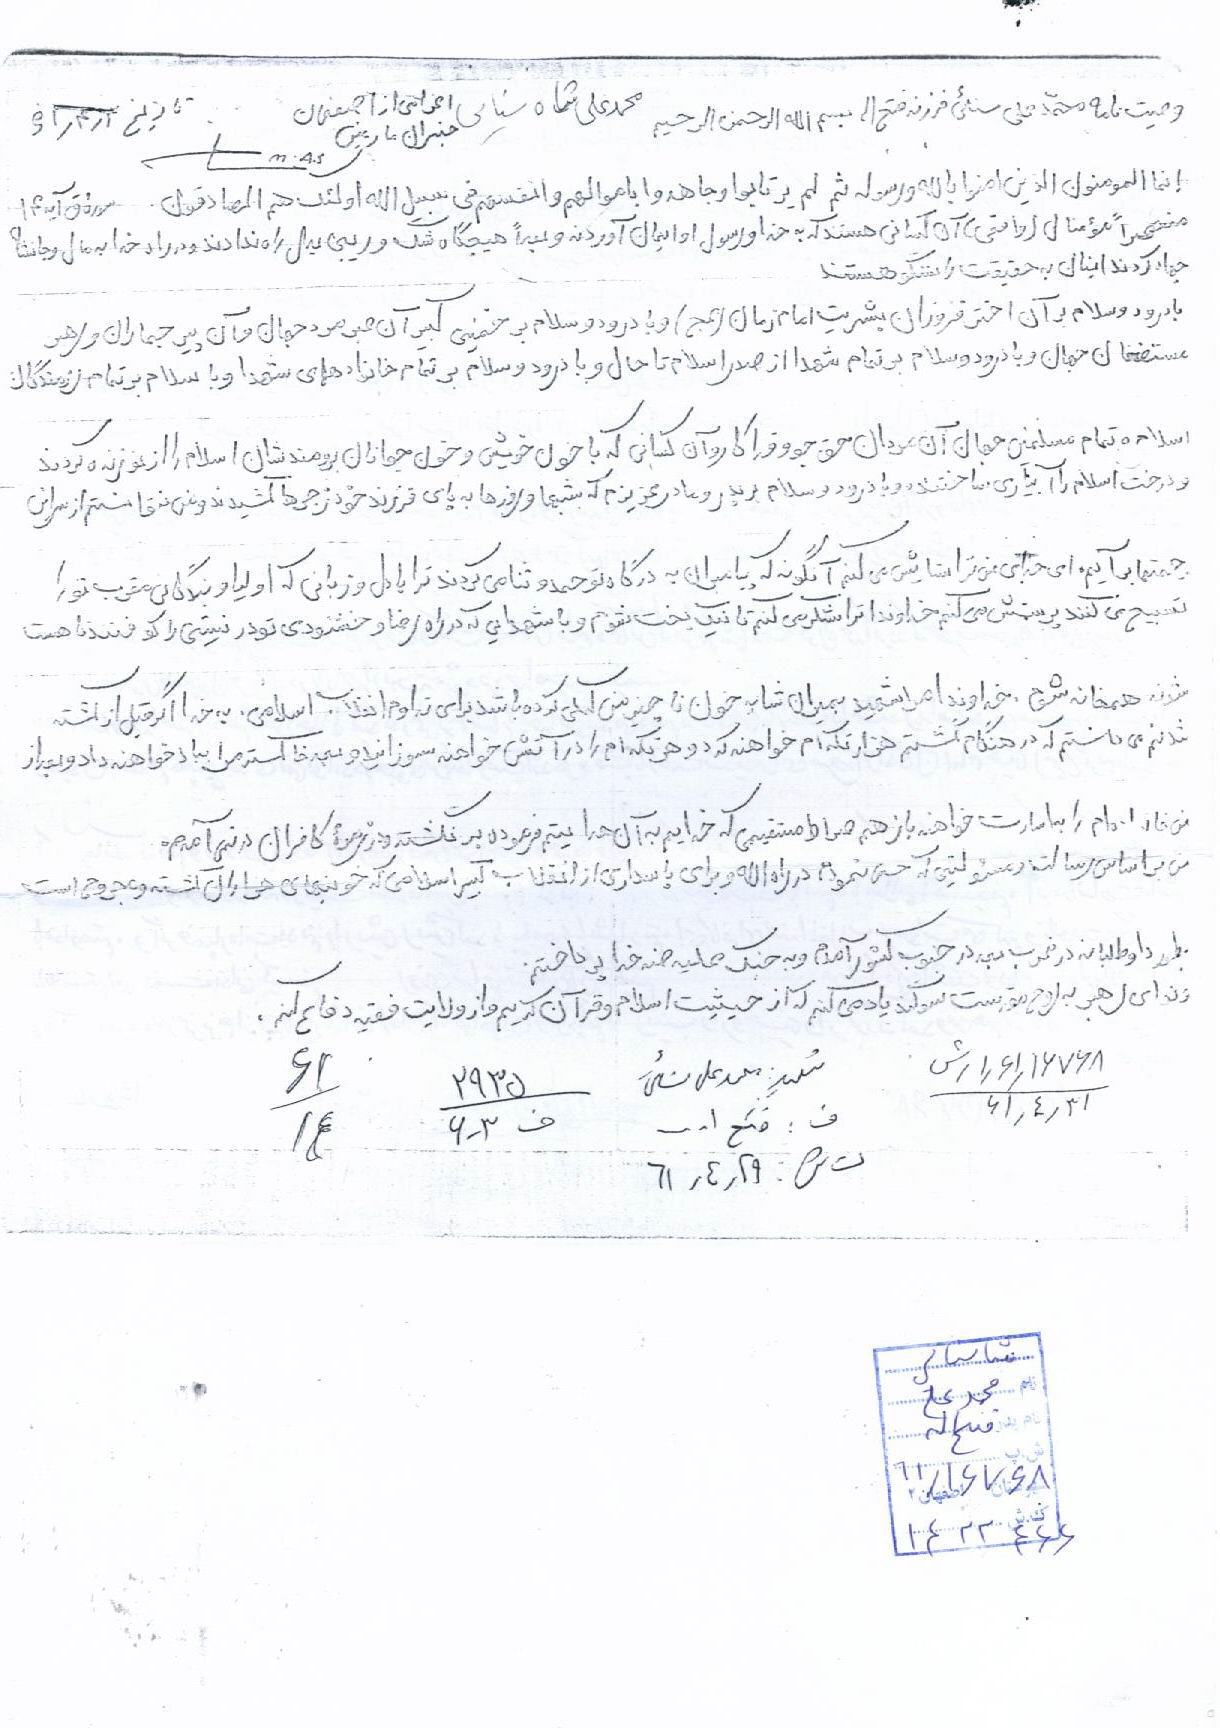 وصیت نامه محمد علی سنائی فرزند فتح اله بسم الله الرحمن الرحیم محمد علی شاه سنایی اعزامی از اصفهان تاریخ
انما المومنون الذین امنوا بالله ورسوله ثم لم یرتابوا وجاهدوا باموالهم وانفسهم فی سبیل الله اولئک هم الصادقون. سوره ق آیه ۱۴
منحصراً مؤمنان (واقعی) آن کسانی هستند که به خدا و رسول او ایمان آوردند و بعداً هیچگاه شک و ریبی بدل راه ندادند و در راه خدا به مال و جانشان
جهاد کردند اینان به حقیقت راستگو هستند
با درود و سلام بر آن اختر فروزان بشریت امام زمان (عج) و با درود و سلام بر خمینی کبیر آن ابر مرد جهان و آن پیر جماران و رهبر
مستضعفان جهان و با درود و سلام بر تمام شهدا از صدر اسلام تا حال و با درود و سلام بر تمام خانواده‌های شهدا و با سلام بر تمام رزمندگان
اسلام و تمام مسلمین جهان آن مردان حق جو و فداکار و آن کسانی که با خون خویش و خون جوانان برومندشان اسلام را از نو زنده کردند
و درخت اسلام را آبیاری ساختند و با درود و سلام بر پدر و مادر عزیزم که شبها و روزها به پای فرزند خود زجرها کشیدند و من نتوانستم از
برآیم. ای خدای من ترا ستایش می کنم آنگونه که پیامبران به درگاه تو حمد و ثنا می کردند ترا با دل و زبانی که اولیا و بندگان مقرب تو را
تسبیح می کنند پرستش می کنم خداوندا ترا شکر می کنم تا نیک بخت شوم و با شهدایی که در راه رضا و خشنودی تو
شوم همخانه شوم. خداوندا مرا شهید بمیران شاید خون ناچیز من کمکی کرده باشد برای تداوم انقلاب اسلامی. به خدا اگر قبل از کشته
شدنم می دانستم که در هنگام کشتنم هزار تکه ام خواهند کرد و هر تکه ام را در آتش خواهند سوزانید و سپس خاکسترم را بباد خواهند داد و بعد از
خواهند باز هم صراط مستقیمی که خدایم به آن هدایتم فرموده بر نگشته و در زمره کافران در نمی آمدم.
من بر اساس رسالت و مسئولیتی که حس نمودم در راه الله و برای پاسداری از انقلاب کبیر اسلامی که خونبهای هزاران کشته و مجروح است
بطور داوطلبانه در جنوب کشور آمدم و به جنگ علیه ضد خدا پرداختم.
و ندای رهبر به روح مقدست سوگند یاد می کنم که از حیثیت اسلام و قرآن کریم و از ولایت فقیه دفاع کنم.
۶۱٫۱۶۷۶۸ شهید: محمد علی ۲۹۳۵
۶۱٫۴٫۳۱ ف: فتح ا...
ت ش: ۶۱٫۴٫۲۹
نام محمد علی
نام پدر فتح اله
ش پ ۶۱/۱۶۷۶۸
اصفهان ۲